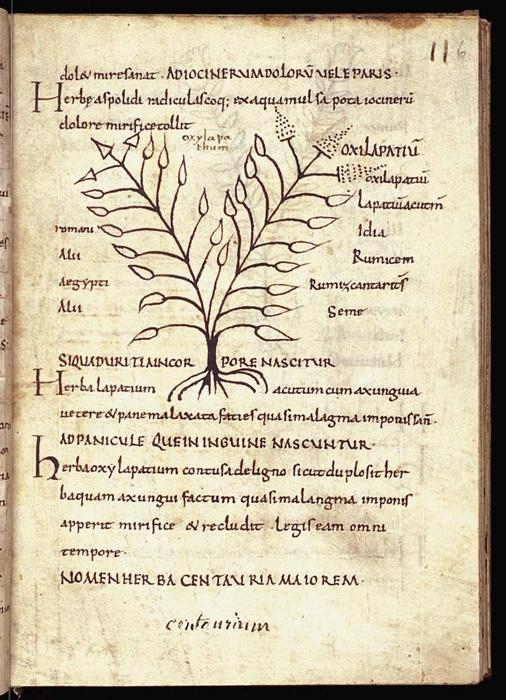 116
dolore mire sanat · AD IOCINERUM DOLORŪ VEL EPARIS ·
Herbę aspolidi radiculas coq; ex aqua mulsa pota iocinerū
& dolore mirifice tollit
oxylapa
thum
OXILAPATIŪ
oxilapatiū
Lapatiū acutm̄
romani
Idia
Alii
Rumicem
Aegypti
Rumex cantarus
Alii
Seme
SI QUA DURITIA IN COR PORE NASCITUR
Herba lapatium acutum cum axungia
uetere & pane malaxata facies quasi malagma imponis san̄.
AD PANICULE QUE IN INGUINE NASCUNTUR ·
herba oxylapatium contusa de ligno sicut duplosit her
baquam axungui factum quasi malangma imponis
apperit mirifice & recludit · Legis eam omni
tempore ·
NOMEN HERBA CENTAURIA MAIOREM ·
centaurium